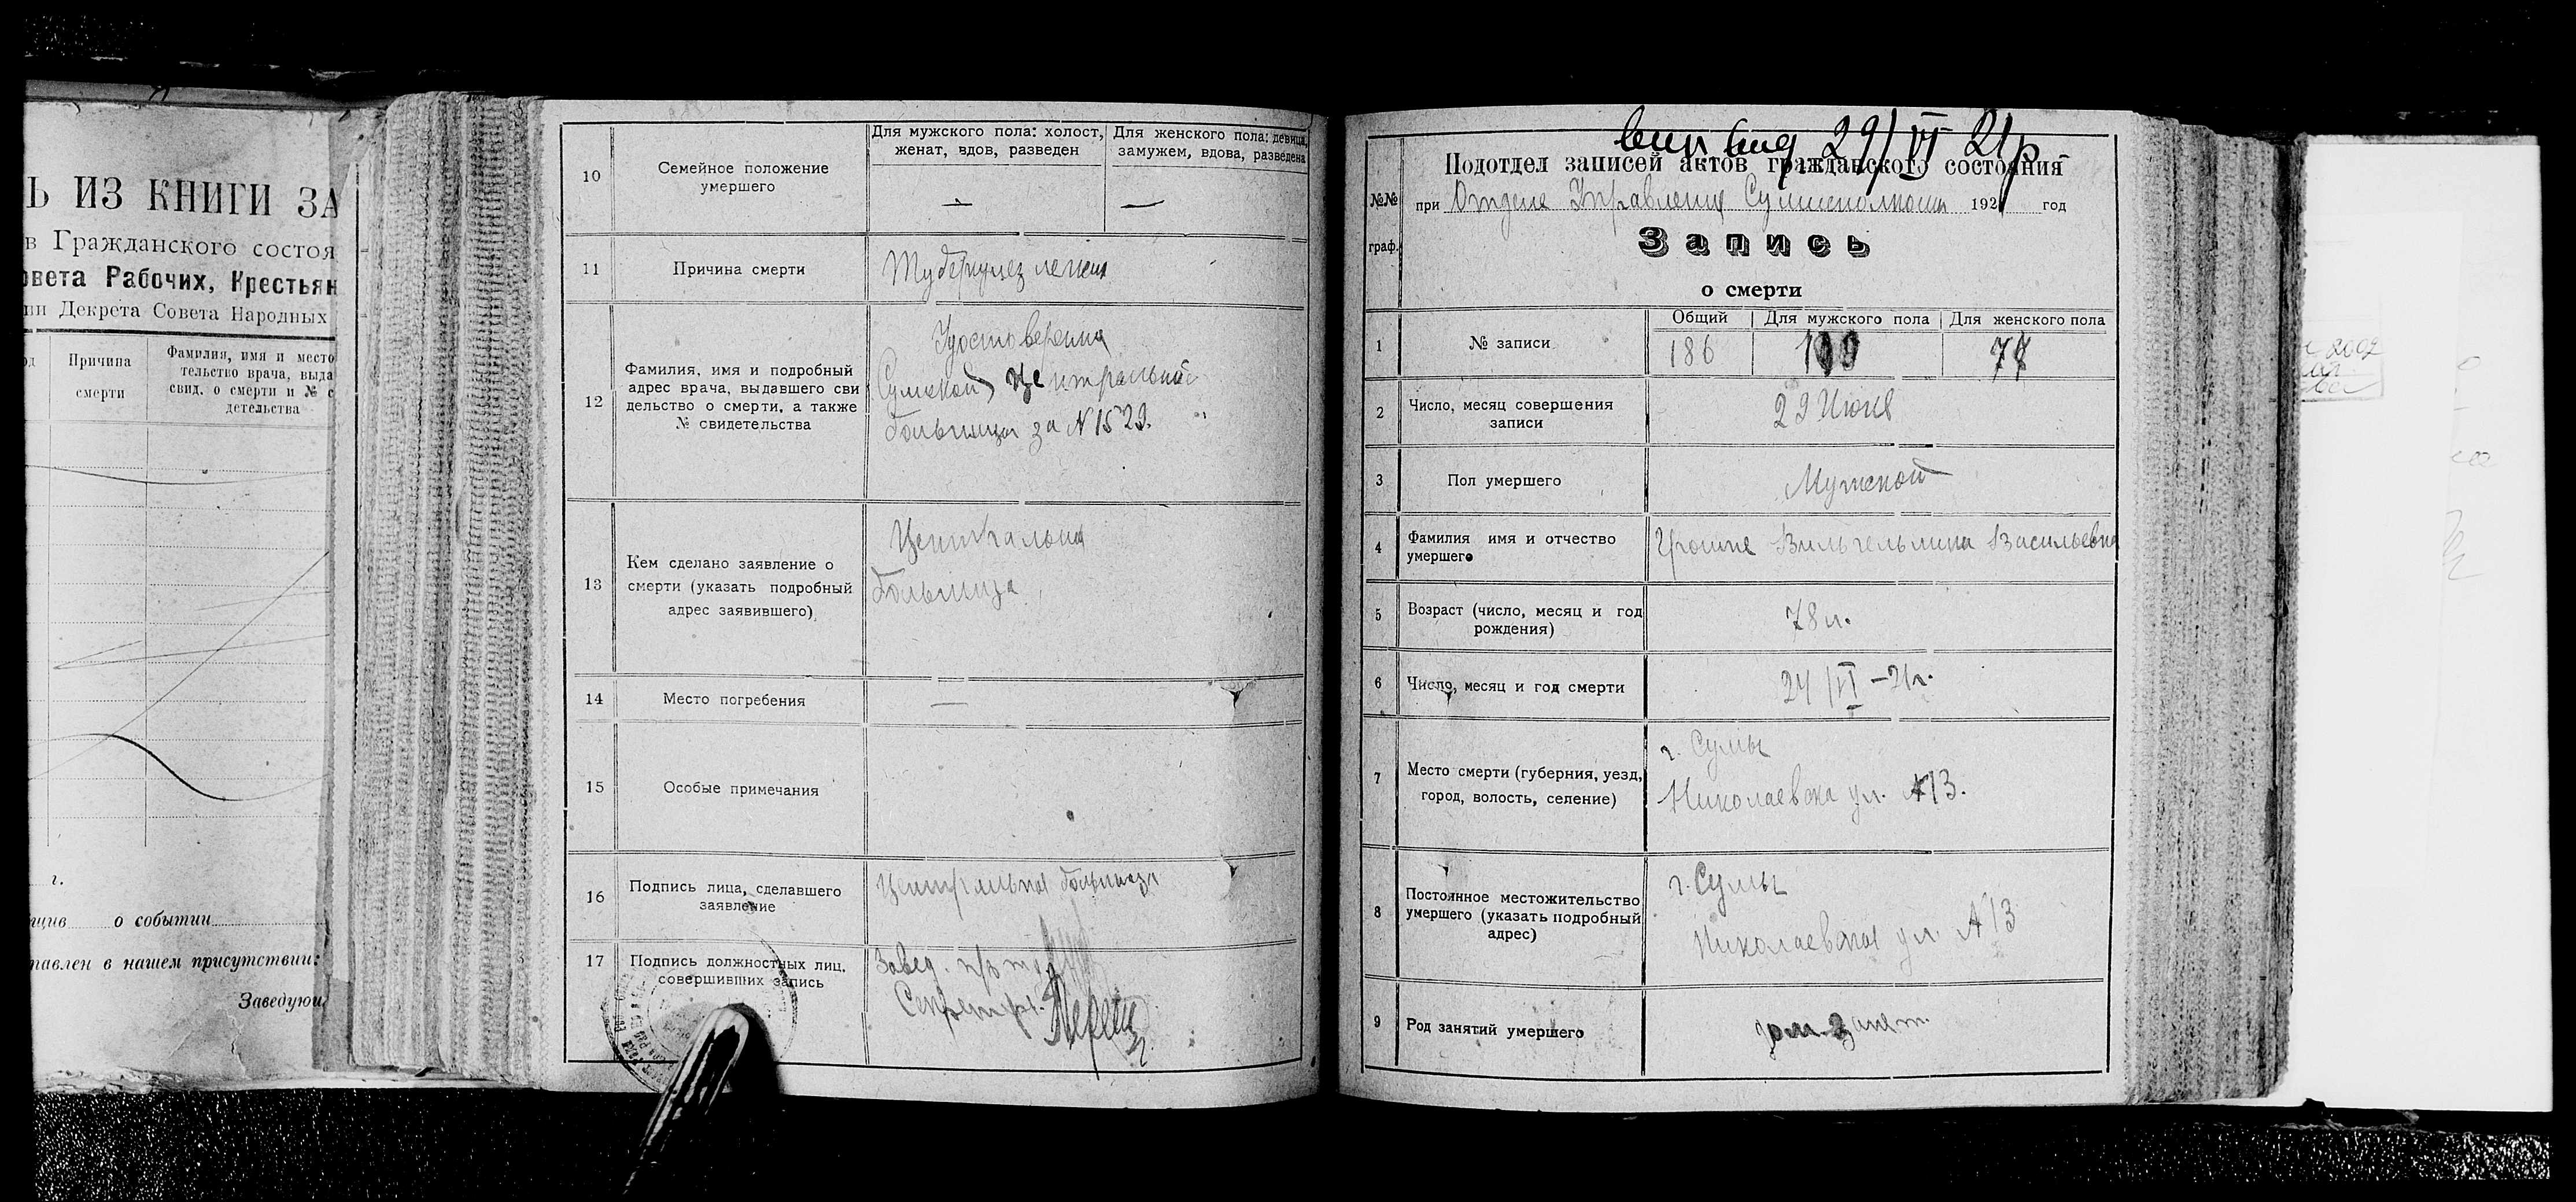 Ь ИЗ КНИГИ ЗА
в Гражданского состоя
овета Рабочих, Крестьян
ии Декрета Совета Народных
Причина
смерти
Фамилия, имя и место
тельство врача, выда
свид. о смерти и № с
детельства
г.
о событии
тавлен в нашем присутствии:
Заведующ
10
Семейное положение
умершего
Для мужского пола: холост,
женат, вдов, разведен
—
Для женского пола: девица,
замужем, вдова, разведена
—
11
Причина смерти
Туберкулез легких
12
Фамилия, имя и подробный
адрес врача, выдавшего сви
дельство о смерти, а также
№ свидетельства
Удостоверение
Сумской Центральной
больницы за N 1529.
13
Кем сделано заявление о
смерти (указать подробный
адрес заявившего)
Центральная
больница
14
Место погребения
—
15
Особые примечания
16
Подпись лица, сделавшего
заявление
Центральная больница
17
Подпись должностных лиц,
совершивших запись
Завед. п/отд
Секретарь
29/VI 21р
№№
граф.
Подотдел записей актов гражданского состояния
при Отделе Управления Сумисполкома 1921 год
Запись
о смерти
1
№ записи
Общий
Для мужского пола
Для женского пола
186
109
77
2
Число, месяц совершения
записи
29 Июня
3
Пол умершего
Мужской
4
Фамилия имя и отчество
умершего
Вильгельмина Васильевна
5
Возраст (число, месяц и год
рождения)
78 л.
6
Число, месяц и год смерти
24/VI – 21г.
7
Место смерти (губерния, уезд,
город, волость, селение)
г. Сумы
Николаевска ул. №13.
8
Постоянное местожительство
умершего (указать подробный
адрес)
г. Сумы
Николаевская ул. №13
9
Род занятий умершего
дом. занят.